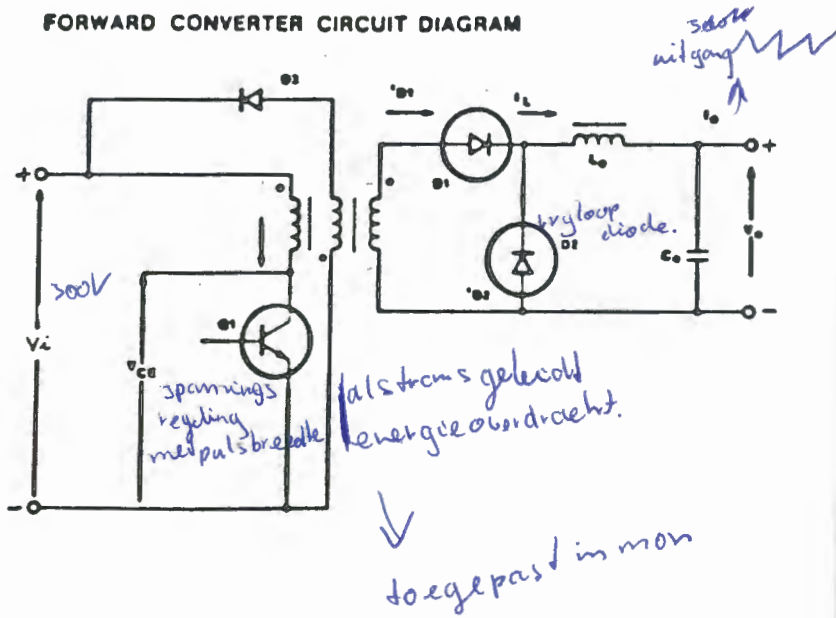 FORWARD CONVERTER CIRCUIT DIAGRAM
uitgang
D3
iD1
IL
Io
+
+
D1
Lo
vryloop
diode.
D2
Co
Vo
iD2
-
300V
Vi
VCE
Q1
spannings
regeling
met pulsbreedte
als trans geleidt
energieoverdracht.
-
toegepast in mon